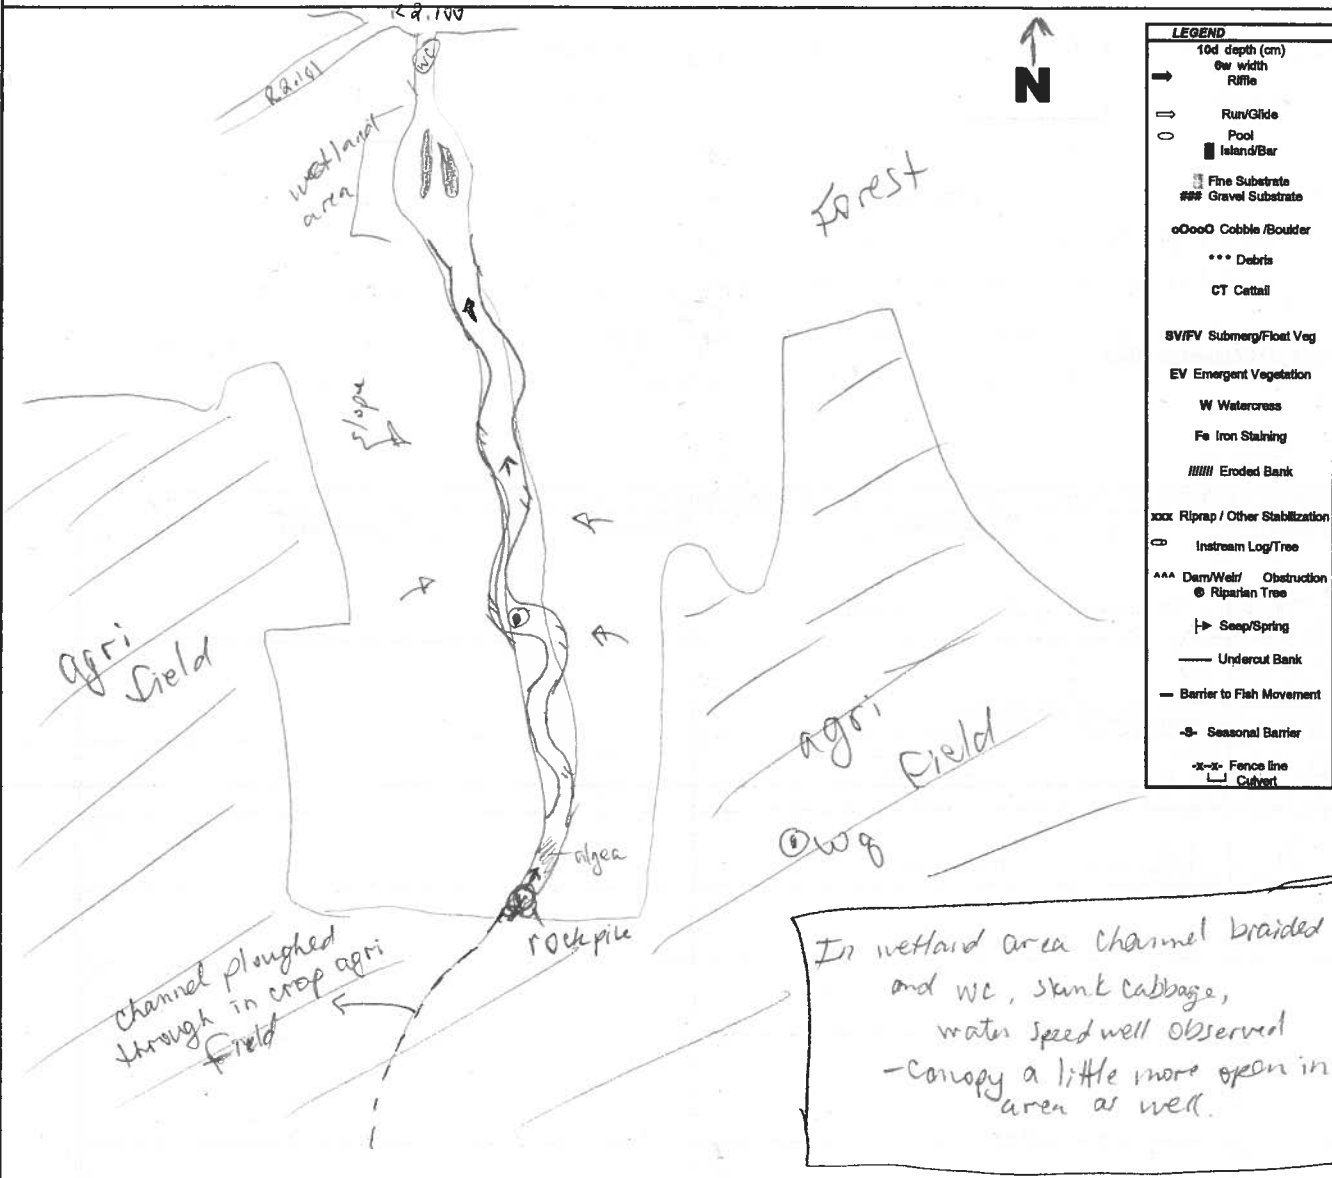 R2.100
WC
R2.101
wetland
area
N
Forest
slope
agri
field
agri
field
wq
algea
rockpile
channel ploughed
through in crop agri
field
In wetland area channel braided
and WC, skunk cabbage,
water speedwell observed
- Canopy a little more open in
area as well.
LEGEND
10d depth (cm)
6w width
Riffle
Run/Glide
Pool
Island/Bar
Fine Substrate
### Gravel Substrate
oOooO Cobble /Boulder
*** Debris
CT Cattail
SV/FV Submerg/Float Veg
EV Emergent Vegetation
W Watercress
Fe Iron Staining
/////// Eroded Bank
xxx Riprap / Other Stabilization
Instream Log/Tree
^^^ Dam/Weir/ Obstruction
Riparian Tree
Seep/Spring
Undercut Bank
Barrier to Fish Movement
-S- Seasonal Barrier
-x--x- Fence line
Culvert